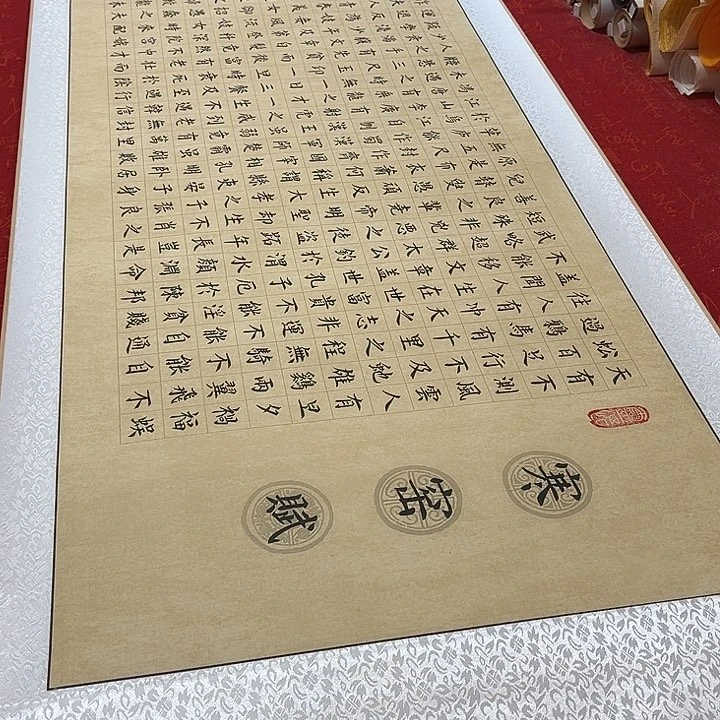 寒窑賦
天有不測風雲人有旦夕禍福蜈
蚣百足行不及蛇雄雞兩翼飛不
過鴉馬有千里之程無騎不能自
往人有沖天之志非運不能自通
蓋聞人生在世富貴不能淫貧賤
不能移文章蓋世孔子厄於陳邦
武略超群太公釣於渭水顏淵命
短殊非兇惡之徒盜跖年長豈是
善良之輩堯帝明聖卻生不肖之
兒瞽叟愚頑反生大孝之子張良
原是布衣蕭何稱謂縣吏晏子身
無五尺封作齊國宰相孔明臥居
草廬能作蜀漢軍師楚霸雖雄敗
於烏江自刎漢王雖弱竟有萬里
江山李廣有射虎之威到老無封
馮唐有乘龍之才一生不遇韓信
未遇之時無一日三餐及至遇行
腰懸三尺玉印一旦時衰死於陰
人之手有先貧而後富有老壯而
少衰滿腹文章白髮竟然不中才